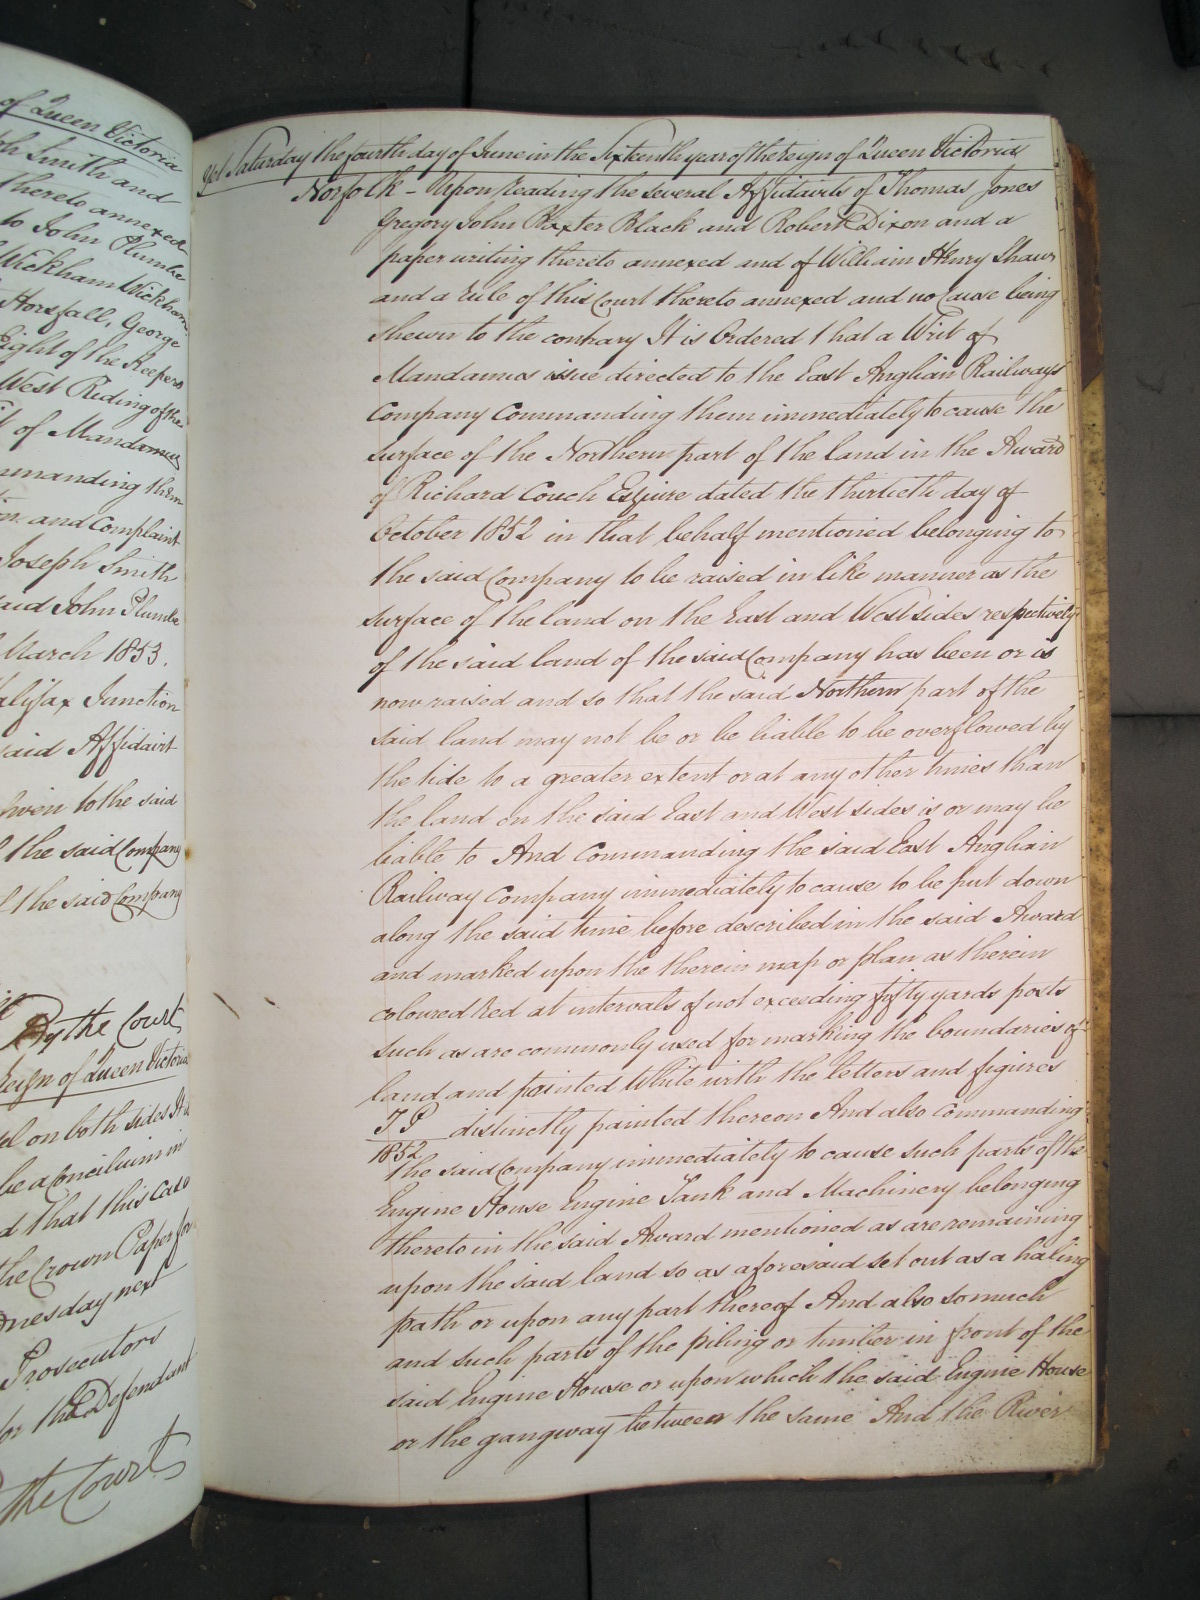 of Queen Victoria
Smith and
thereto annexed
to John Plumbe
Wickham Wickham
Horsfall, George
Eight of the Keepers
West Riding of the
of Mandamus
mmanding them
and Complaint
Joseph Smith
said John Plumbe
March 1853.
Halifax Junction
said Affidavit
given to the said
the said Company
the said Company
By the Court
Reign of Queen Victoria
on both sides It is
be a Concilium in
that this Case
the Crown Paper for
dnesday next
Prosecutors
for the Defendant
the Court
Yet Saturday the fourth day of June in the Sixteenth year of the reign of Queen Victoria
Norfolk – Upon reading the several Affidavits of Thomas Jones
Gregory John Baxter Black and Robert Dixon and a
paper writing thereto annexed and of William Henry Shaw
and a rule of this Court thereto annexed and no Cause being
shewn to the contrary It is Ordered that a Writ of
Mandamus issue directed to the East Anglian Railways
Company Commanding them immediately to cause the
surface of the Northern part of the land in the Award
of Richard Couch Esquire dated the thirtieth day of
October 1852 in that behalf mentioned belonging to
the said Company to be raised in like manner as the
surface of the land on the East and West sides respectively
of the said land of the said Company has been or is
now raised and so that the said Northern part of the
said land may not be or be liable to be overflowed by
the tide to a greater extent or at any other times than
the land on the said East and West sides is or may be
liable to And Commanding the said East Anglian
Railway Company immediately to cause to be put down
along the said time before described in the said Award
and marked upon the therein map or plan as therein
coloured Red at intervals of not exceeding fifty yards posts
such as are commonly used for marking the boundaries of
land and painted White with the letters and figures
T P distinctly painted thereon And also commanding
1852
the said Company immediately to cause such parts of the
Engine House Engine Tank and Machinery belonging
thereto in the said Award mentioned as are remaining
upon the said land so as aforesaid set out as a haling
path or upon any part thereof And also so much
and such parts of the piling or timber in front of the
said Engine House or upon which the said Engine House
or the gangway between the same And the River